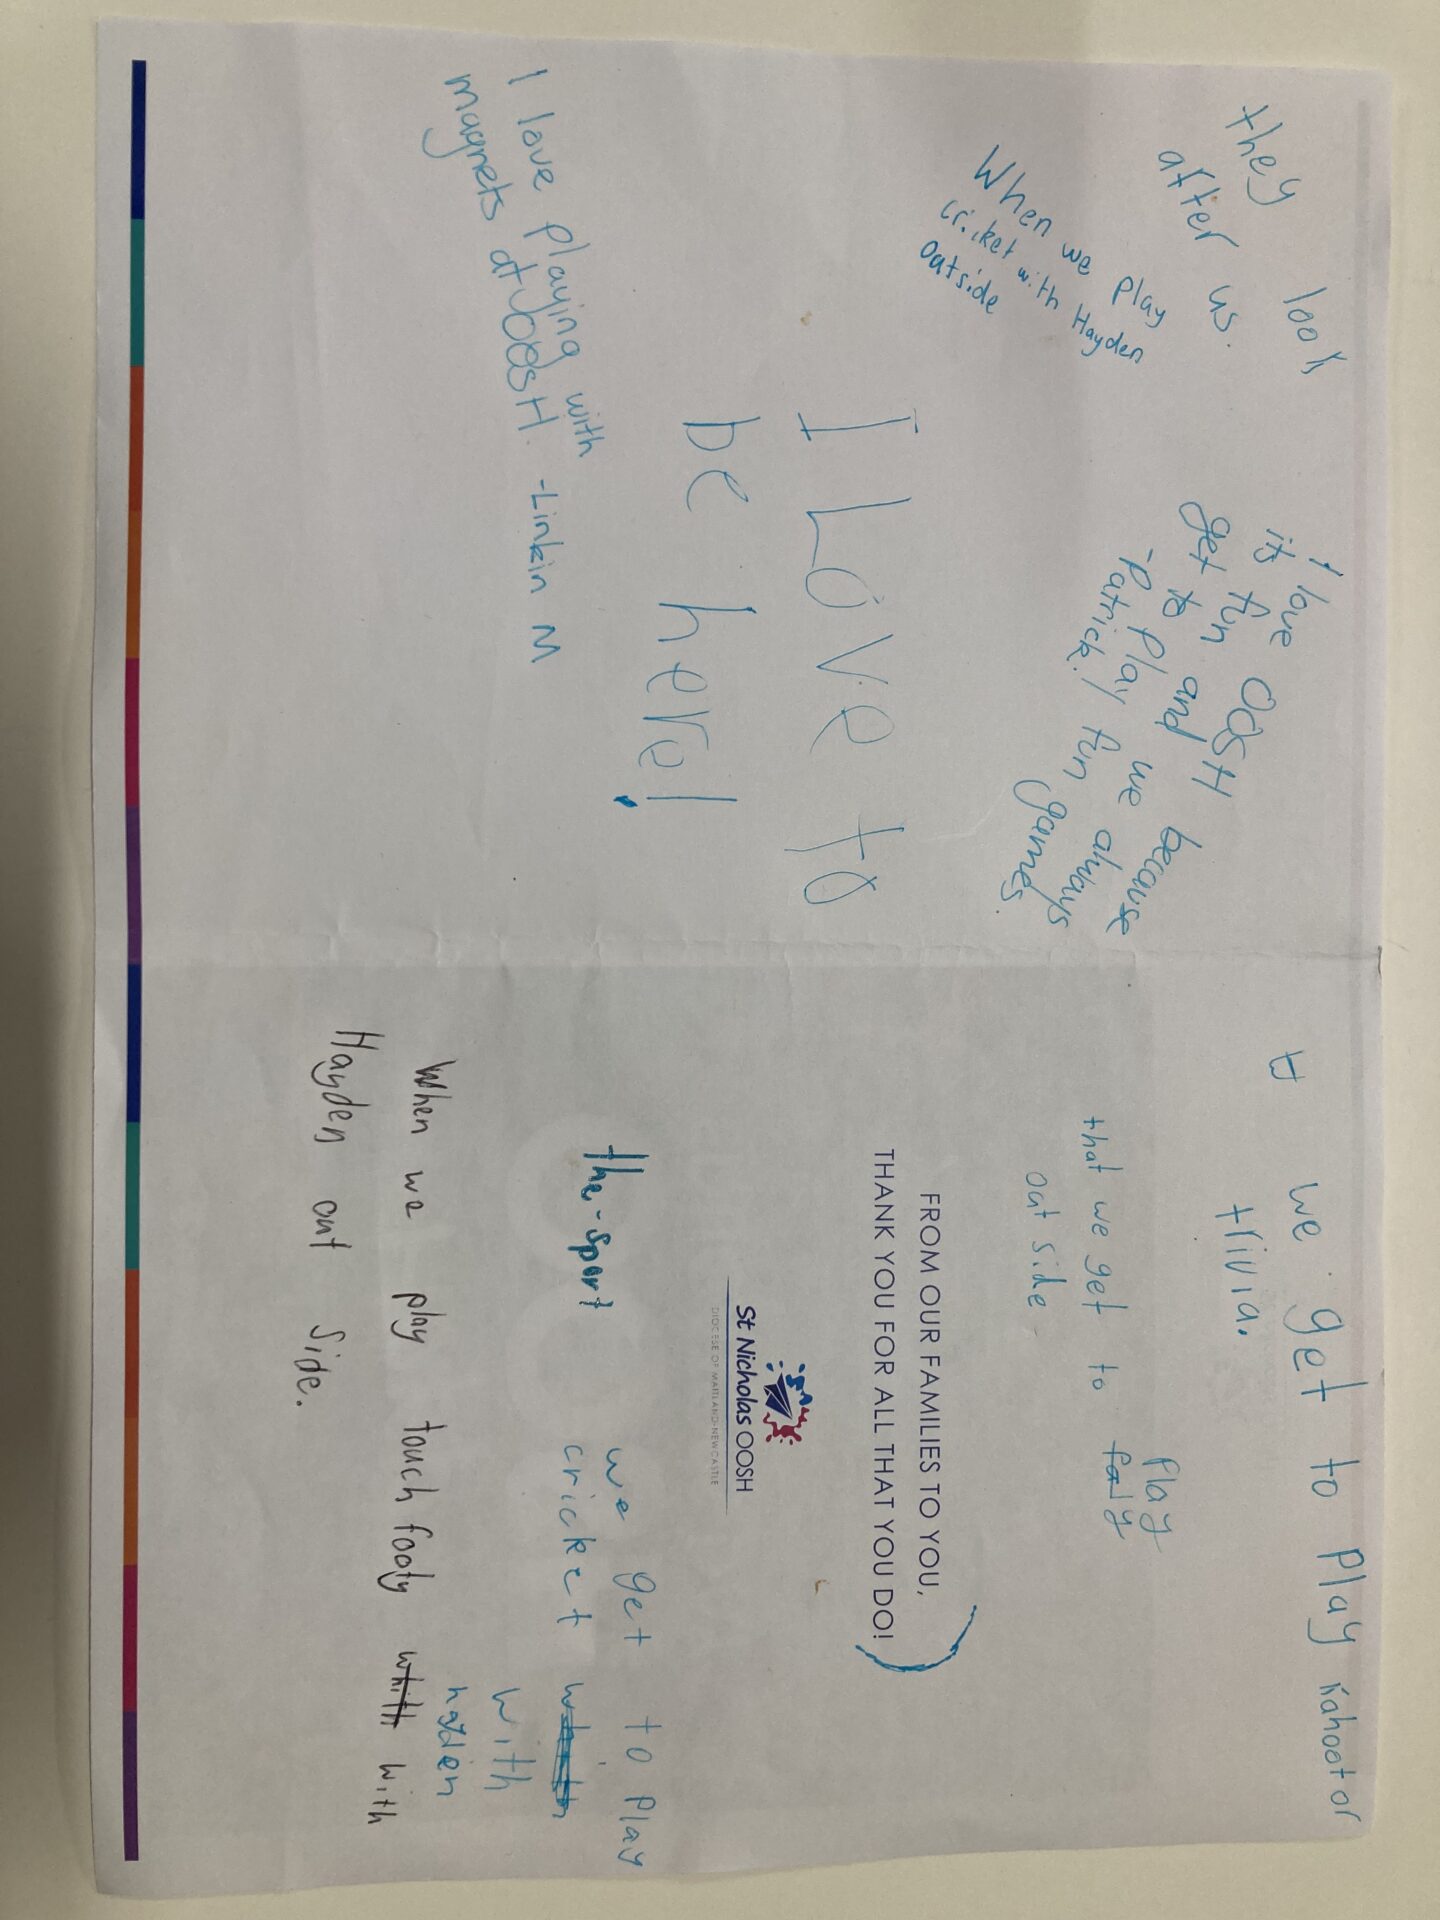 they look
after us.
When we play
cricket with Hayden
oatside
I love OOSH because
its fun and we always
get to play fun games.
-Patrick.
I Love to
be here!
I love playing with
magnets at OOSH.
-Linkin M
we get to play kahoot or
trivia.
that we get to play
faly
out side.
FROM OUR FAMILIES TO YOU,
THANK YOU FOR ALL THAT YOU DO!
St Nicholas OOSH
DIOCESE OF MAITLAND-NEWCASTLE
the-sport
we get to play
cricket
with
hayden
When we play touch footy whith with
Hayden out side.